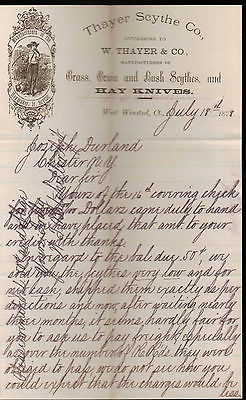 Thayer Scythe Co.,
SUCCESSORS TO
W. THAYER & CO.,
MANUFACTURERS OF
Grass, Grain and Bush Scythes, and
HAY KNIVES.
West Winsted, Ct. July 18th 1878
Joseph Durland
Chester N Y
Dear Sir
Yours of the 16th covering check
for Dollars came duly to hand
and we have placed that amt. to your
credit with thanks
In regard to the bal due, 50¢, we
sold you the scythes very low and for
net cash, shipped them exactly as per
directions and now, after waiting nearly
three months, it seems hardly fair for
you to ask us to pay freight, especially
as over the number of R Roads they were
obliged to pass, we do not see how you
could expect that the charges would be
less